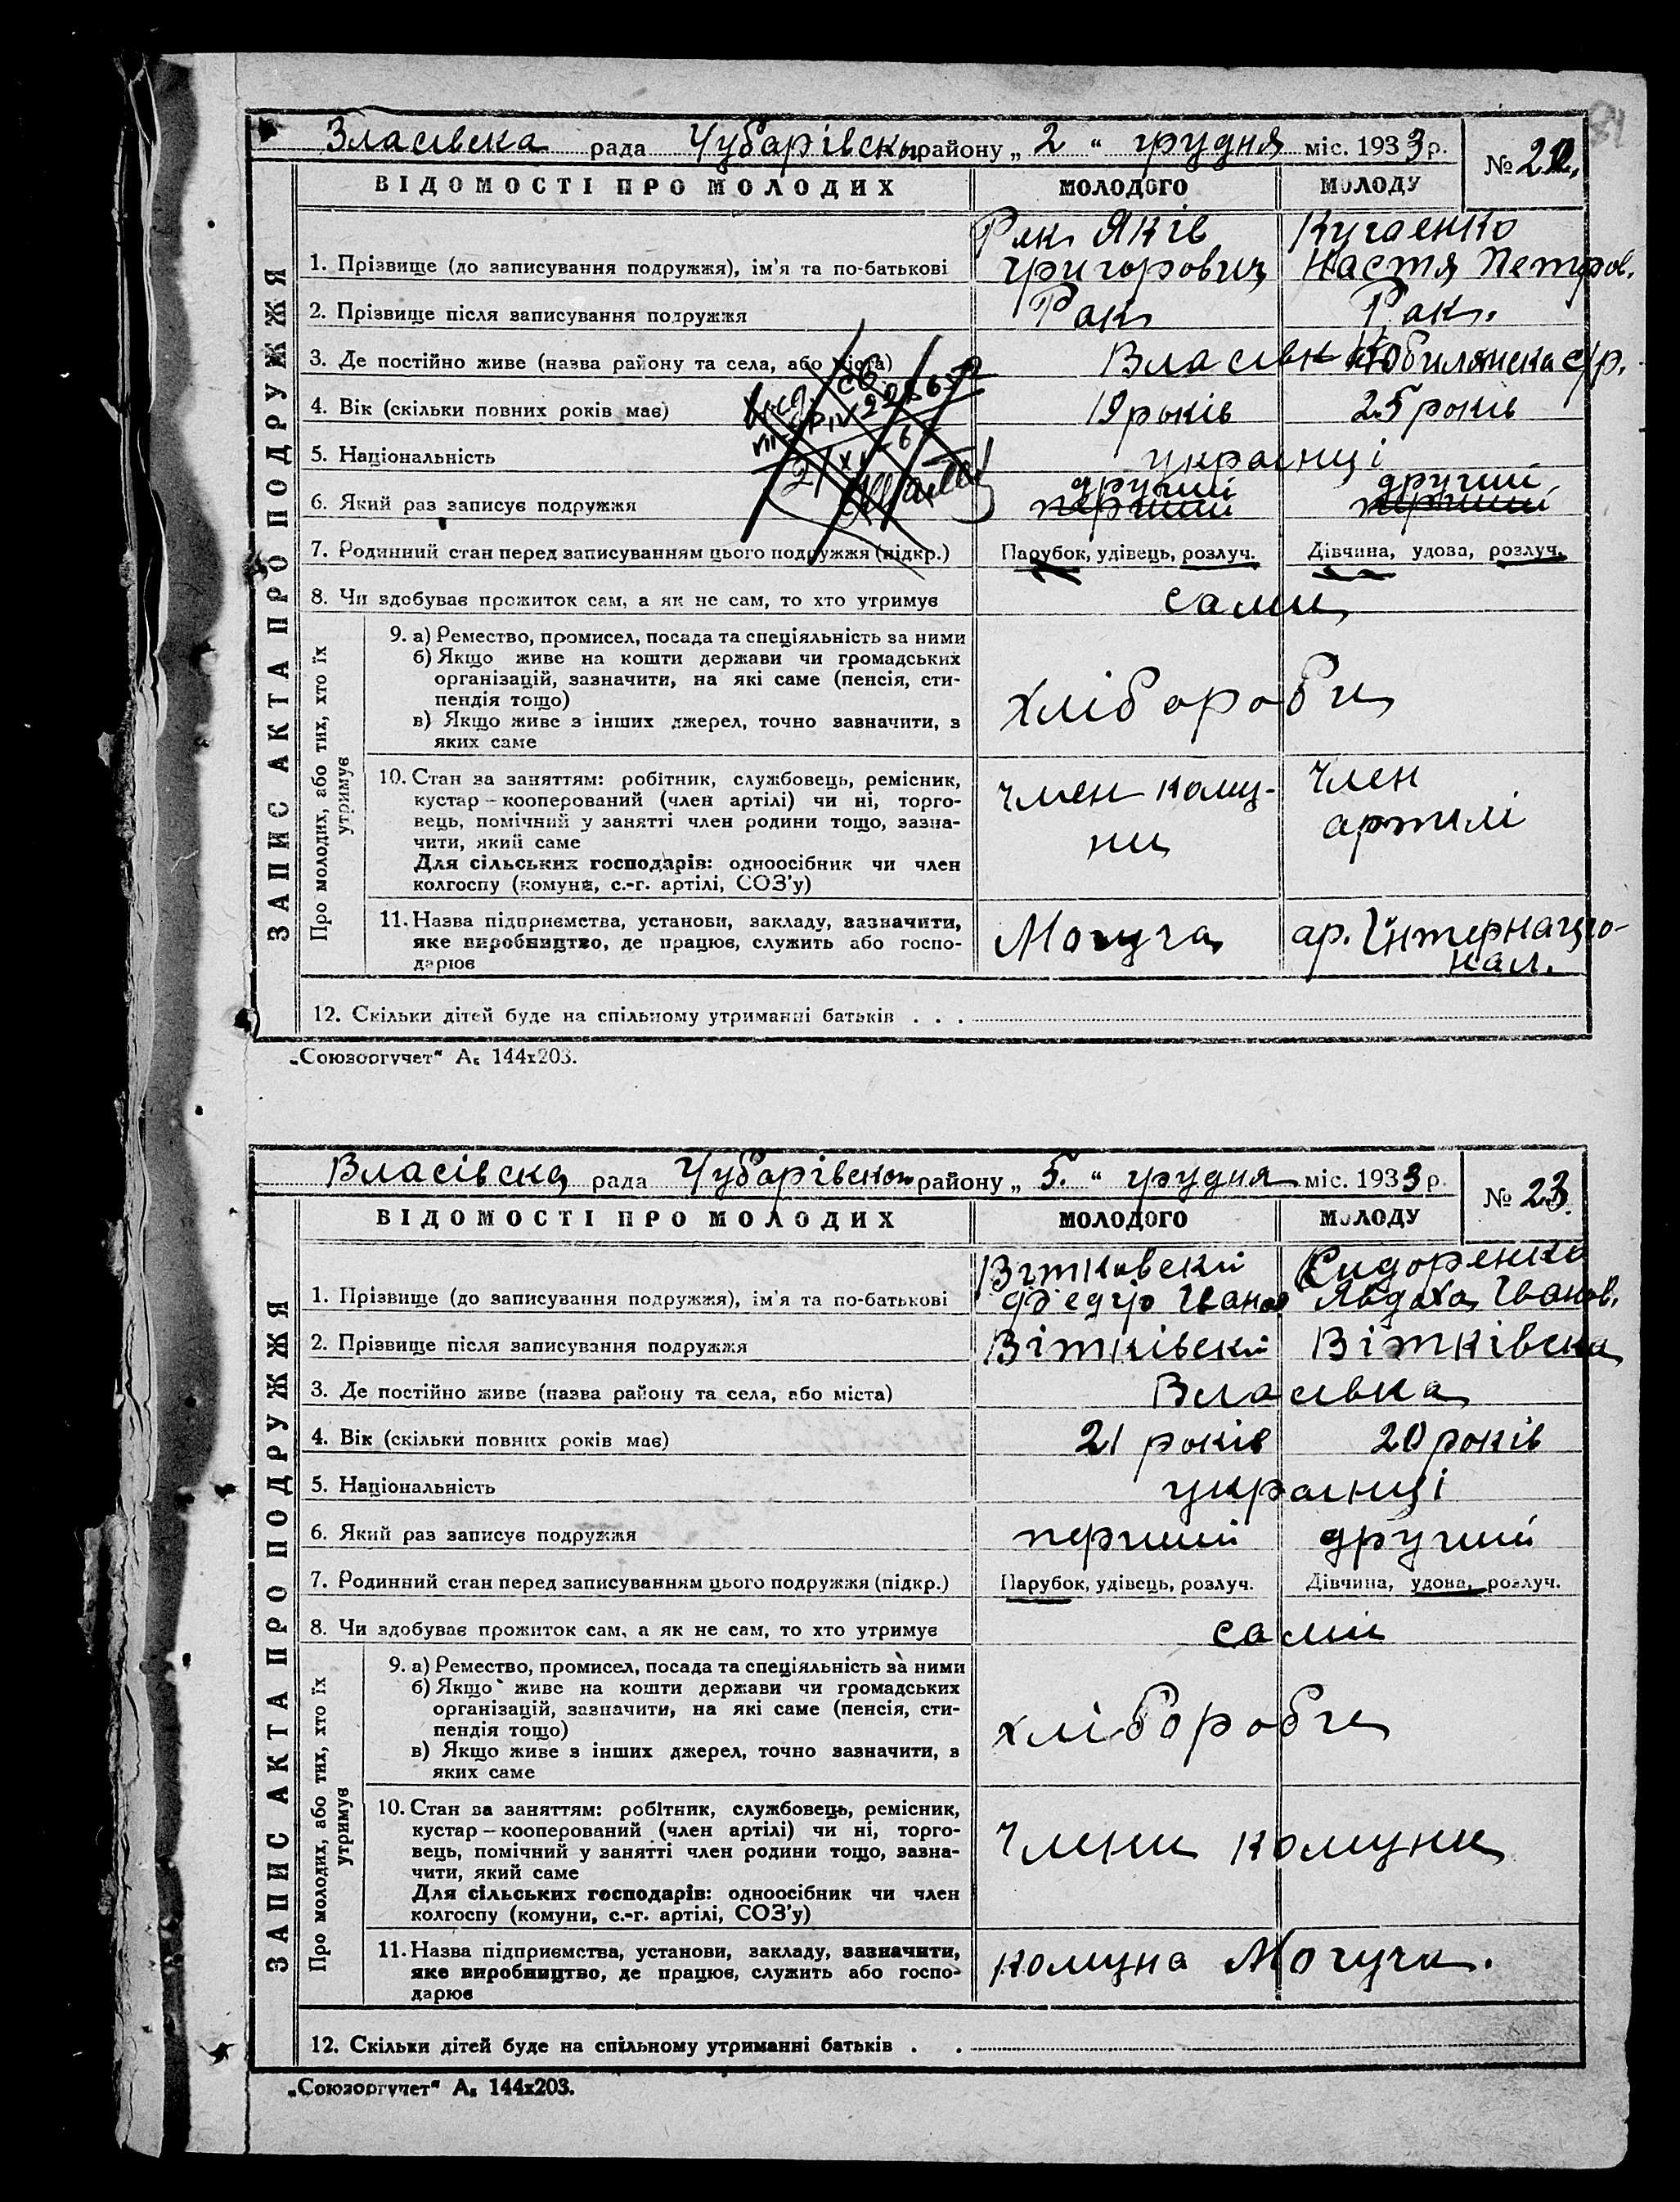 Власівска рада Чубарівськ району „ 2 “ грудня міс. 1933 р.
№ 22.
ВІДОМОСТІ ПРО МОЛОДИХ МОЛОДОГО МОЛОДУ
ЗАПИС АКТА ПРО ПОДРУЖЖЯ
Рак Яків Кугаенко
1. Прізвище (до записування подружжя), ім’я та по-батькові Григорович Настя Петров.
2. Прізвище після записування подружжя Рак Рак.
3. Де постійно живе (назва району та села, або міста) Власівка Юбилянска с/р.
4. Вік (скільки повних років має) 19 років 25 років
5. Національність украінці
другий другий
6. Який раз записує подружжя перший перший
7. Родинний стан перед записуванням цього подружжя (підкр.) Парубок, удівець, розлуч. Дівчина, удова, розлуч.
8. Чи здобуває прожиток сам, а як не сам, то хто утримує сами
Про молодих, або тих, хто їх утримує
9. а) Ремество, промисел, посада та спеціяльність за ними
б) Якщо живе на кошти держави чи громадських
організацій, зазначити, на які саме (пенсія, сти-
пендія тощо)
в) Якщо живе з інших джерел, точно зазначити, з
яких саме
хлібороби
10. Стан за заняттям: робітник, службовець, ремісник,
кустар – кооперований (член артілі) чи ні, торго-
вець, помічний у занятті член родини тощо, зазна-
чити, який саме
Для сільських господарів: одноосібник чи член
колгоспу (комуни, с.-г. артілі, СОЗ’у)
член кому-
ни
член
артилі
11. Назва підприємства, установи, закладу, зазначити,
яке виробництво, де працює, служить або госпо-
дарює
Могуча
ар. Інтернаціо-
нал.
12. Скільки дітей буде на спільному утриманні батьків . . .
„Союзоргучет“ А₅ 144х203.
Власівска рада Чубарівскои району „ 5. “ грудня міс. 1933 р.
№ 23.
ВІДОМОСТІ ПРО МОЛОДИХ МОЛОДОГО МОЛОДУ
ЗАПИС АКТА ПРО ПОДРУЖЖЯ
Вітковский Сидоренко
1. Прізвище (до записування подружжя), ім’я та по-батькові Федір Іванов Явдоха Іванов.
2. Прізвище після записування подружжя Вітківский Вітківска
3. Де постійно живе (назва району та села, або міста) Власівка
4. Вік (скільки повних років має) 21 років 20 років
5. Національність украінці
6. Який раз записує подружжя перший другий
7. Родинний стан перед записуванням цього подружжя (підкр.) Парубок, удівець, розлуч. Дівчина, удова, розлуч.
8. Чи здобуває прожиток сам, а як не сам, то хто утримує сами
Про молодих, або тих, хто їх утримує
9. а) Ремество, промисел, посада та спеціяльність за ними
б) Якщо живе на кошти держави чи громадських
організацій, зазначити, на які саме (пенсія, сти-
пендія тощо)
в) Якщо живе з інших джерел, точно зазначити, з
яких саме
хлібороби
10. Стан за заняттям: робітник, службовець, ремісник,
кустар – кооперований (член артілі) чи ні, торго-
вець, помічний у занятті член родини тощо, зазна-
чити, який саме
Для сільських господарів: одноосібник чи член
колгоспу (комуни, с.-г. артілі, СОЗ’у)
члени комуни
11. Назва підприємства, установи, закладу, зазначити,
яке виробництво, де працює, служить або госпо-
дарює
комуна Могуча.
12. Скільки дітей буде на спільному утриманні батьків . . .
„Союзоргучет“ А₅ 144х203.